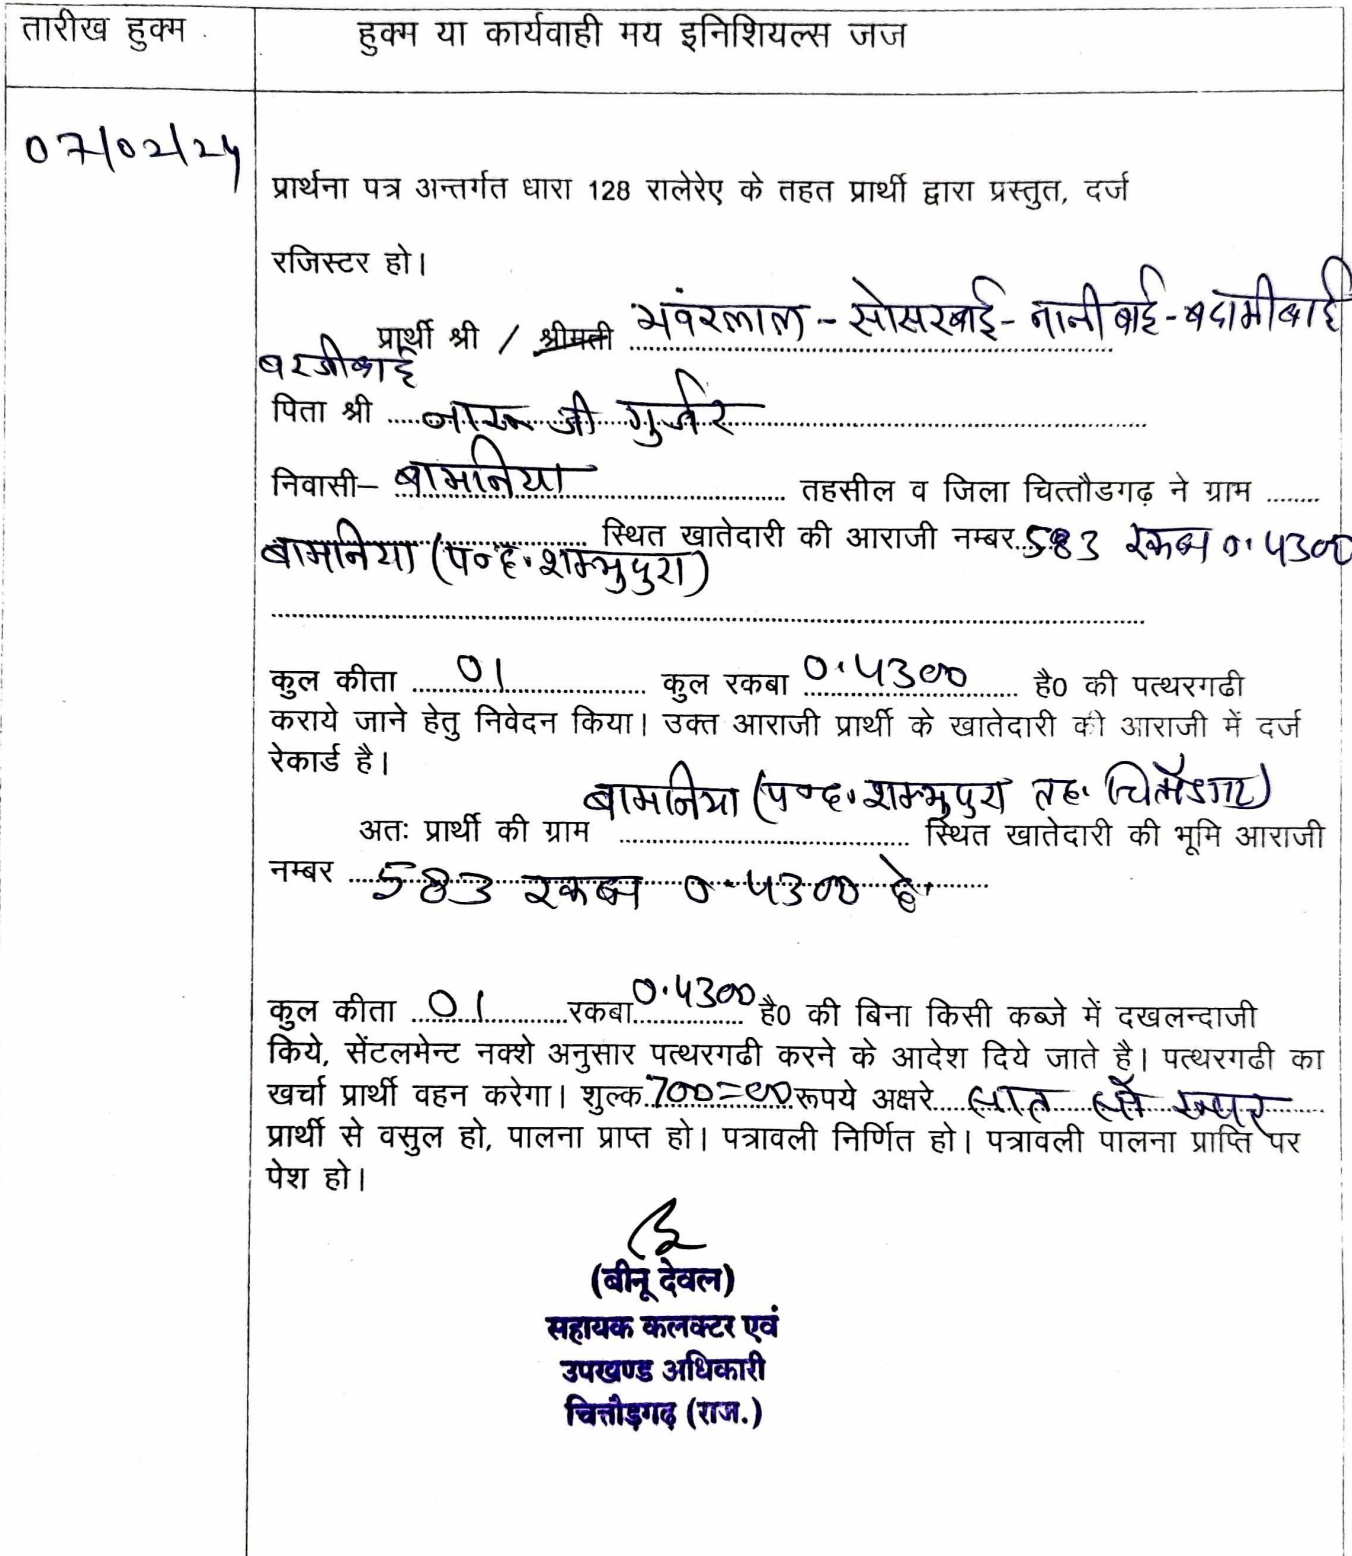 तारीख हुक्म
हुक्म या कार्यवाही मय इनिशियल्स जज
07/02/24
प्रार्थना पत्र अन्तर्गत धारा 128 रालेरेए के तहत प्रार्थी द्वारा प्रस्तुत, दर्ज
रजिस्टर हो।
प्रार्थी श्री / श्रीमती भवंरलाल - सोसरबाई - नानी बाई - बदामीबाई
बरजीबाई
पिता श्री ..... नारू जी गुर्जर
निवासी– बामनिया ..... तहसील व जिला चित्तौडगढ़ ने ग्राम ........
बामनिया (प०ह. शम्भुपुरा) ..... स्थित खातेदारी की आराजी नम्बर.. 583 रकबा 0.4300
कुल कीता ..... 01 ..... कुल रकबा 0.4300 ..... है0 की पत्थरगढी
कराये जाने हेतु निवेदन किया। उक्त आराजी प्रार्थी के खातेदारी की आराजी में दर्ज
रेकार्ड है।
बामनिया (प०ह. शम्भुपुरा तह. चित्तौडगढ)
अतः प्रार्थी की ग्राम ..... स्थित खातेदारी की भूमि आराजी
नम्बर ..... 583 रकबा 0.4300 है.
कुल कीता ... 01 ..... रकबा 0.4300 है0 की बिना किसी कब्जे में दखलन्दाजी
किये, सेंटलमेन्ट नक्शे अनुसार पत्थरगढी करने के आदेश दिये जाते है। पत्थरगढी का
खर्चा प्रार्थी वहन करेगा। शुल्क 700=00 रूपये अक्षरे.... सात सौ रूपए
प्रार्थी से वसुल हो, पालना प्राप्त हो। पत्रावली निर्णित हो। पत्रावली पालना प्राप्ति पर
पेश हो।
(बीनू देवल)
सहायक कलक्टर एवं
उपखण्ड अधिकारी
चित्तौड़गढ़ (राज.)